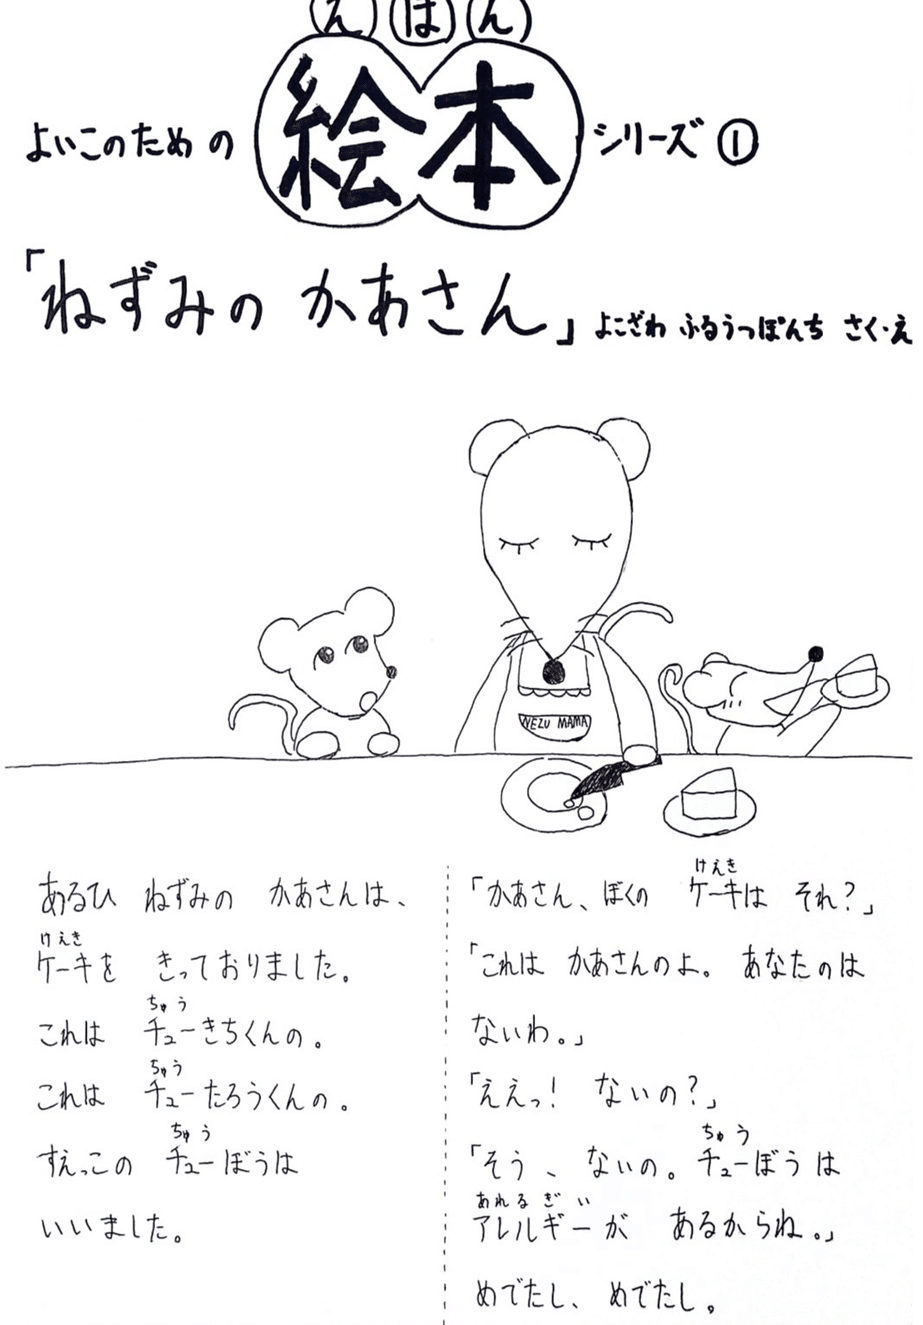 えほん
よいこのための 絵本 シリーズ①
「ねずみの かあさん」よこざわ ふるうっぽんち さく・え
NEZU MAMA
あるひ ねずみの かあさんは、
けえき
ケーキを きっておりました。
ちゅう
これは チューきちくんの。
ちゅう
これは チューたろうくんの。
ちゅう
すえっこの チューぼうは
いいました。
けえき
「かあさん、ぼくの ケーキは それ?」
「これは かあさんのよ。 あなたのは
ないわ。」
「ええっ! ないの?」
ちゅう
「そう、ないの。チューぼうは
あれるぎい
アレルギーが あるからね。」
めでたし、めでたし。